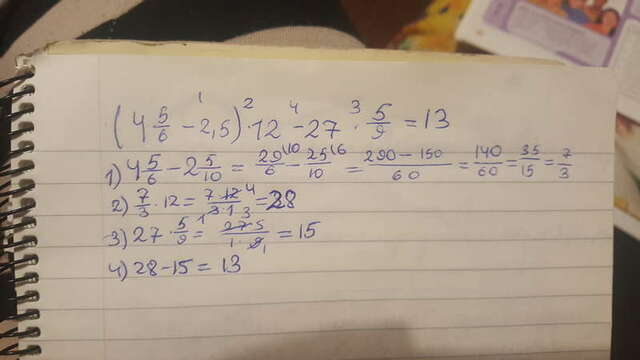 (4 5/6 - 2,5) · 12 - 27 · 5/9 = 13
1) 4 5/6 - 2 5/10 = 29/6 - 25/10 = 290 - 150/60 = 140/60 = 35/15 = 7/3
2) 7/3 · 12 = 7·12/3·1 = 28
3) 27 · 5/9 = 27·5/1·9 = 15
4) 28 - 15 = 13